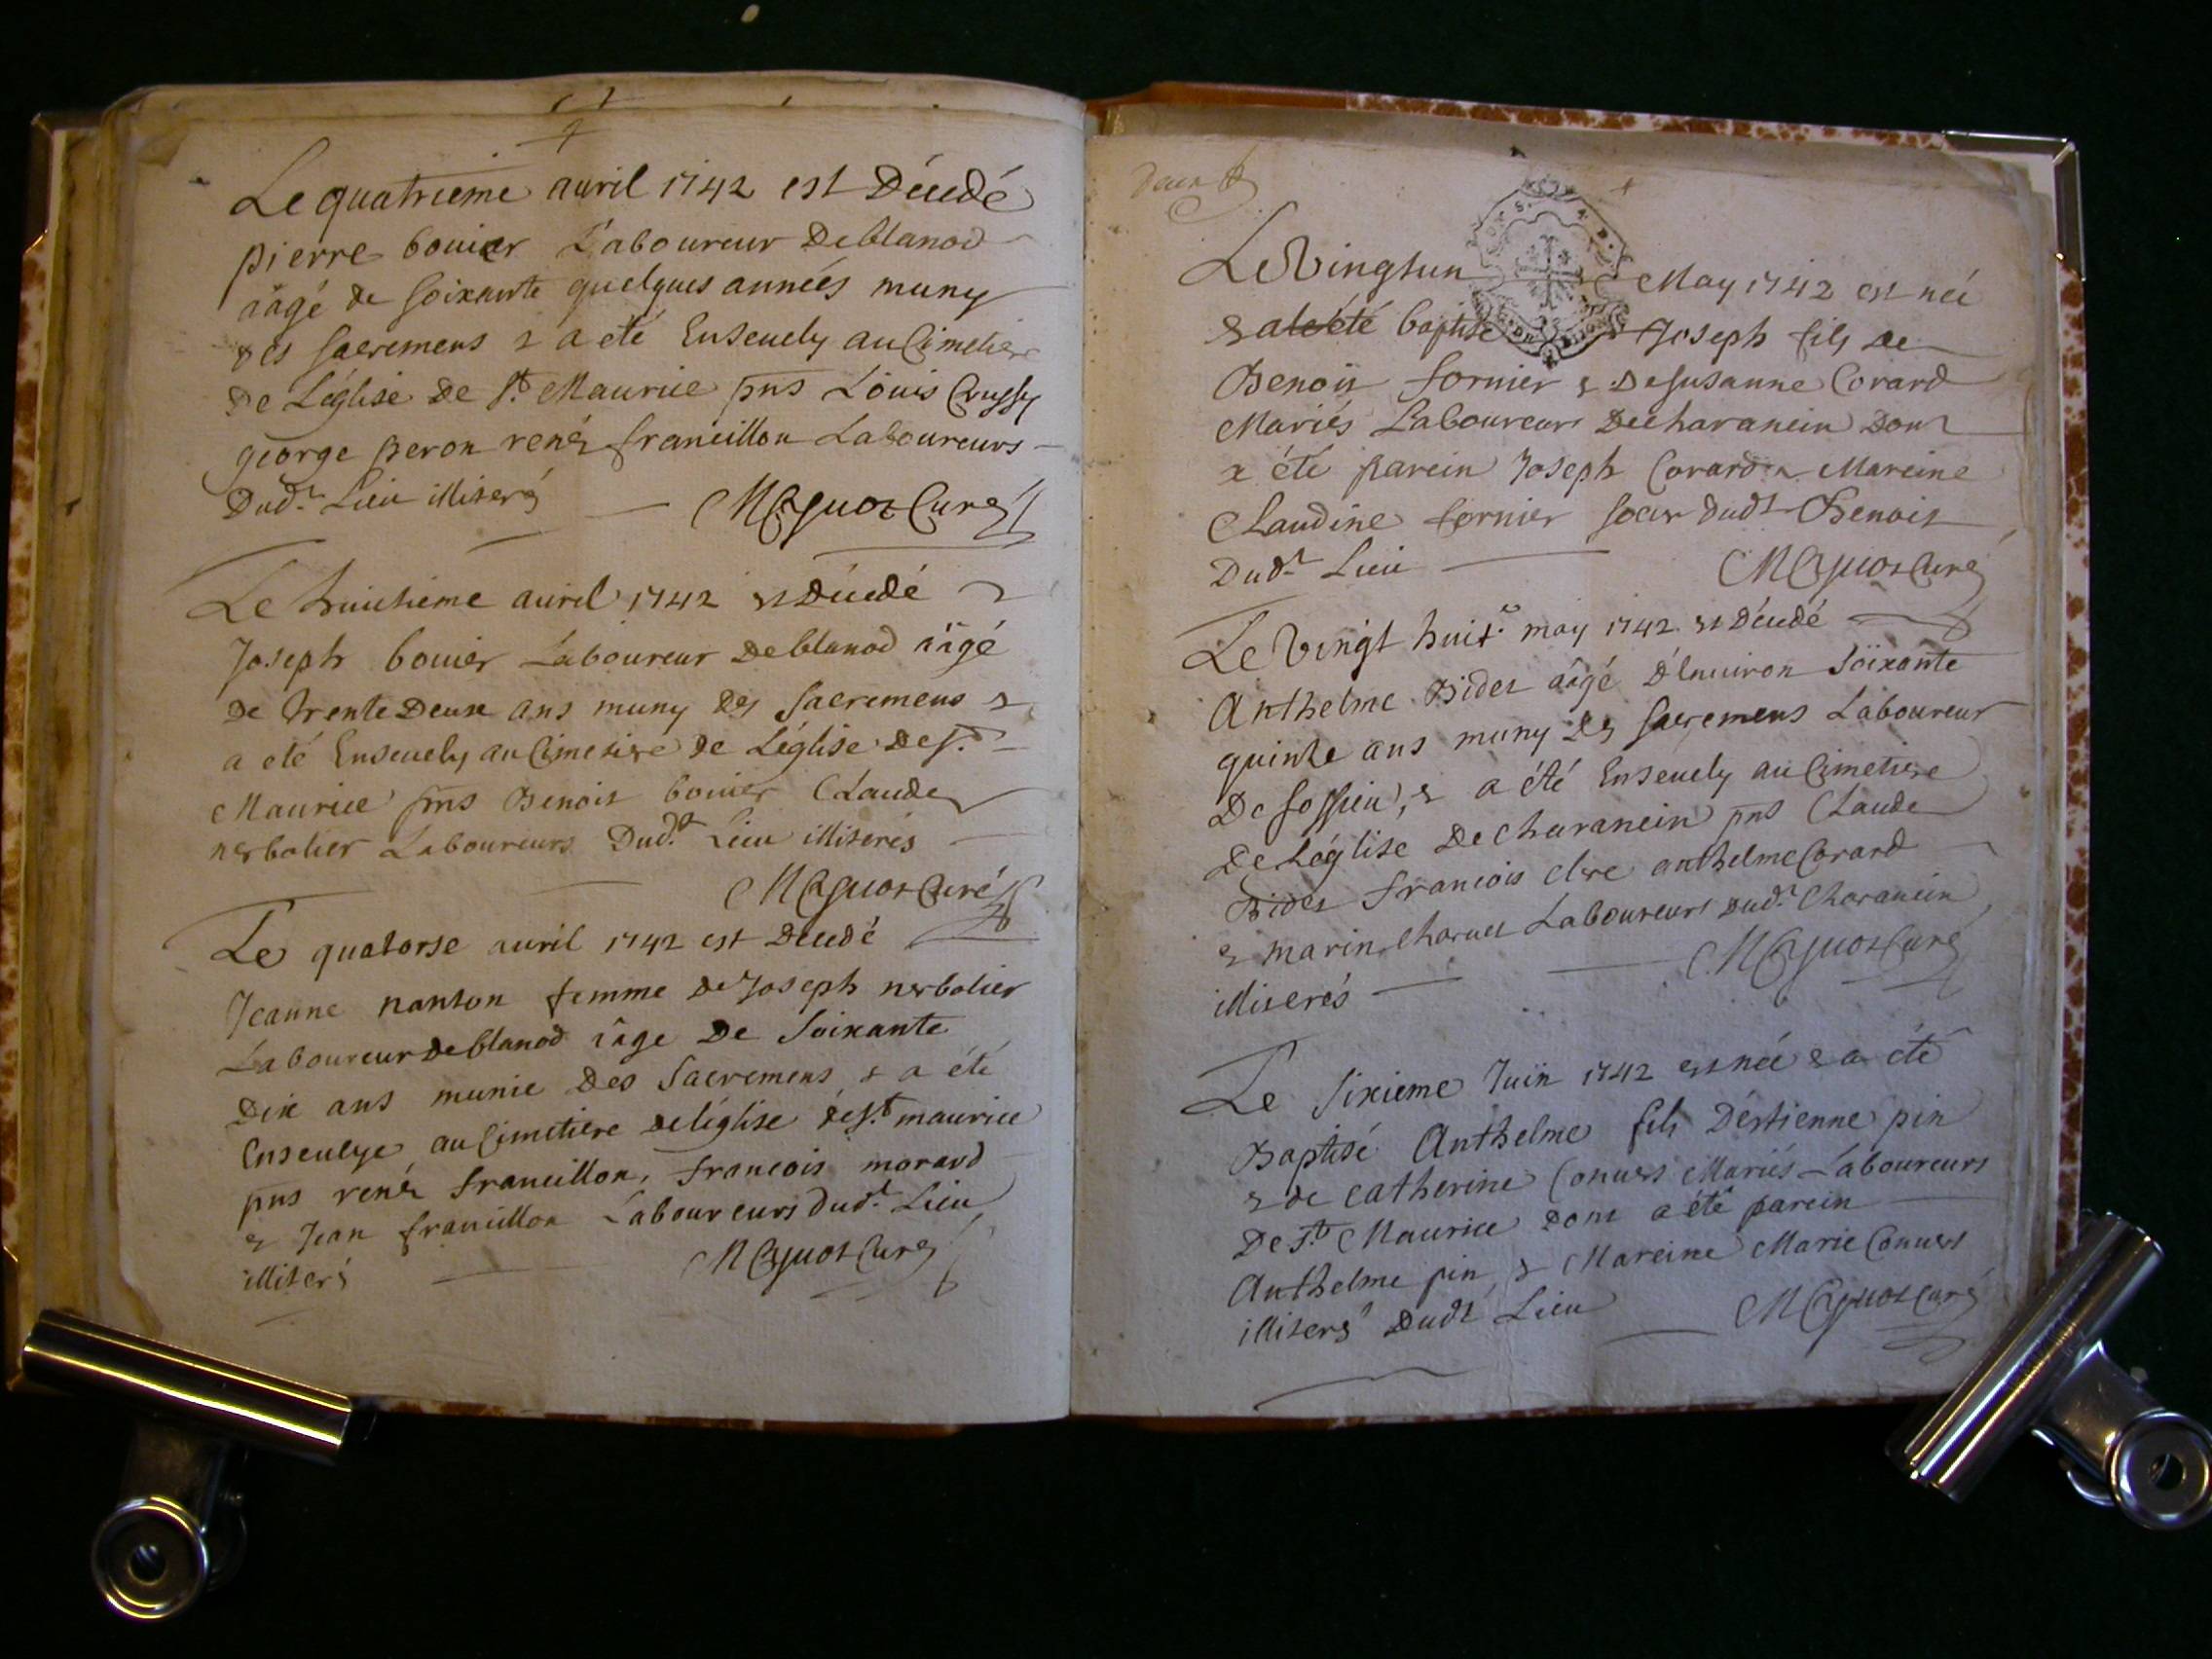 Le quatrieme auril 1742 est Décedé
pierre bouier Laboureur De blanod
aâgé de soixante quelques années muny
des sacremens & a été Enseuely au Cimetiere
De L'église de st. Maurice pns Louis Crussy
george peron rené francillon Laboureurs
Dudt. Lieu illiterés Maguot Curé
Le huictieme auril 1742 est Décedé
Joseph bouier Laboureur De blanod aâgé
De trente Deux ans muny Des sacremens &
a eté Enseuely au Cimetiere De L'église De st.
Maurice pns Benoit bouier Claude
nerbolier Laboureurs Dudt. Lieu illiterés
Maguot Curé
Le quatorse auril 1742 est Decedé
Jeanne nanton femme de Joseph nerbolier
Laboureur De blanod âgé De soixante
Dix ans munie Des sacremens & a été
Enseulye au Cimetiere de l'église de st. maurice
pns rené francillon, francois morard
& Jean francillon Laboureurs Dudt. Lieu
illiteré Maguot Curé
Deux
Le Vingtun May 1742 est néé
& a été baptisé Joseph fils De
Benoit fornier & De susanne Corard
Mariés Laboureurs De charancin Dont
a été parein Joseph Corard & Mareine
Claudine fornier soeur dudt Benoit
Dudt. Lieu Maguot Curé
Le Vingt huit.e may 1742 est Décedé
Anthelme Bidet aâgé D'enuiron soixante
quinze ans muny Des sacremens Laboureur
De sossieu, & a été Enseuely au Cimetiere
De L'église De charancin pns Claude
Bidet francois clere anthelme Corard
& marin charuet Laboureurs dudt. Charancin
illiterés Maguot Curé
Le sixieme Juin 1742 est néé & a été
Baptisé Anthelme fils D'estienne pin
& de catherine Conuers Mariés Laboureurs
De st. Maurice Dont a été parein
Anthelme pin & Mareine Marie Conuers
illiterés Dudt Lieu Maguot Curé